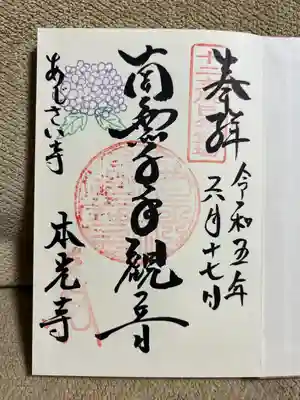 奉拜
令和五年
六月十七日
南無千手観音
あじさい寺
本光寺